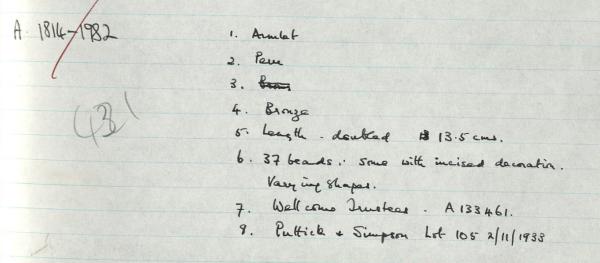 A. 1814-1982
(431
1. Armlet
2. Peru
3. Brons
4. Bronze
5. Length - doubled 13.5 cms.
6. 37 beads : some with incised decoration.
Varying shapes.
7. Wellcome Trustees. A 133461.
8. Puttick & Simpson Lot 105 2/11/1933